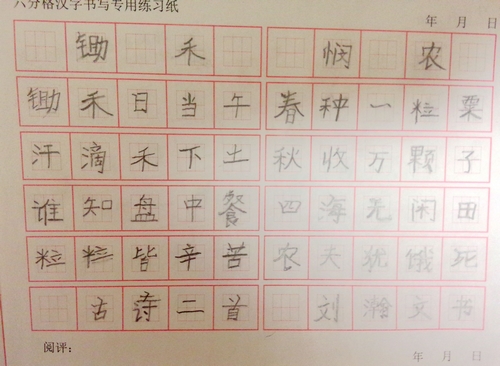 六分格汉字书写专用练习纸
年 月 日
锄 禾
锄禾日当午
汗滴禾下土
谁知盘中餐
粒粒皆辛苦
古诗二首
悯 农
春种一粒栗
秋收万颗子
四海无闲田
农夫犹饿死
刘 文书
阅评：
年 月 日